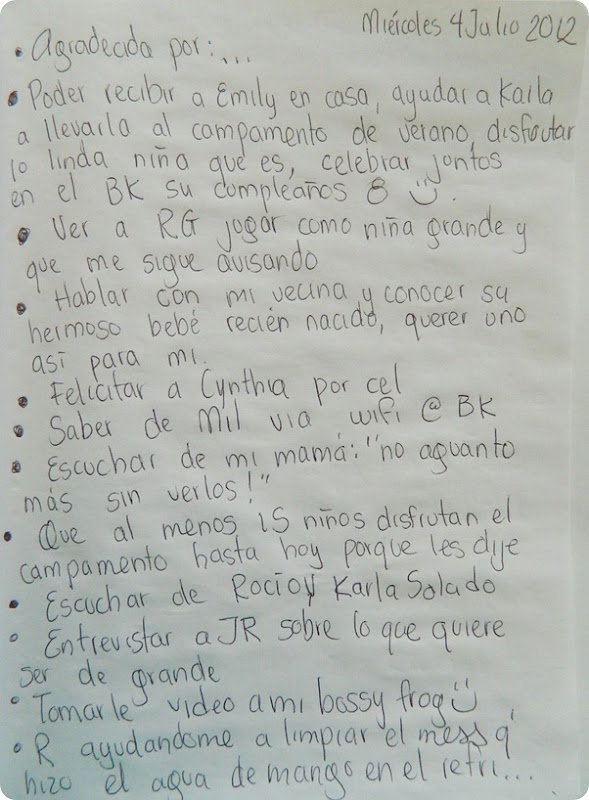 Miércoles 4 Julio 2012
• Agradecida por:...
• Poder recibir a Emily en casa, ayudar a Karla
a llevarla al campamento de verano, disfrutar
lo linda niña que es, celebrar juntos
en el BK su cumpleaños 8 :).
• Ver a RG jugar como niña grande y
que me sigue avisando
• Hablar con mi vecina y conocer su
hermoso bebé recién nacido, querer uno
así para mi.
• Felicitar a Cynthia por cel
• Saber de Mil via wifi @ BK
• Escuchar de mi mamá: "no aguanto
más sin verlos!"
• Que al menos 15 niños disfrutan el
campamento hasta hoy porque les dije
• Escuchar de Rocío y Karla Solado
• Entrevistar a JR sobre lo que quiere
ser de grande
• Tomarle video a mi bossy frog :)
• R ayudandome a limpiar el mess q'
hizo el agua de mango en el refri...